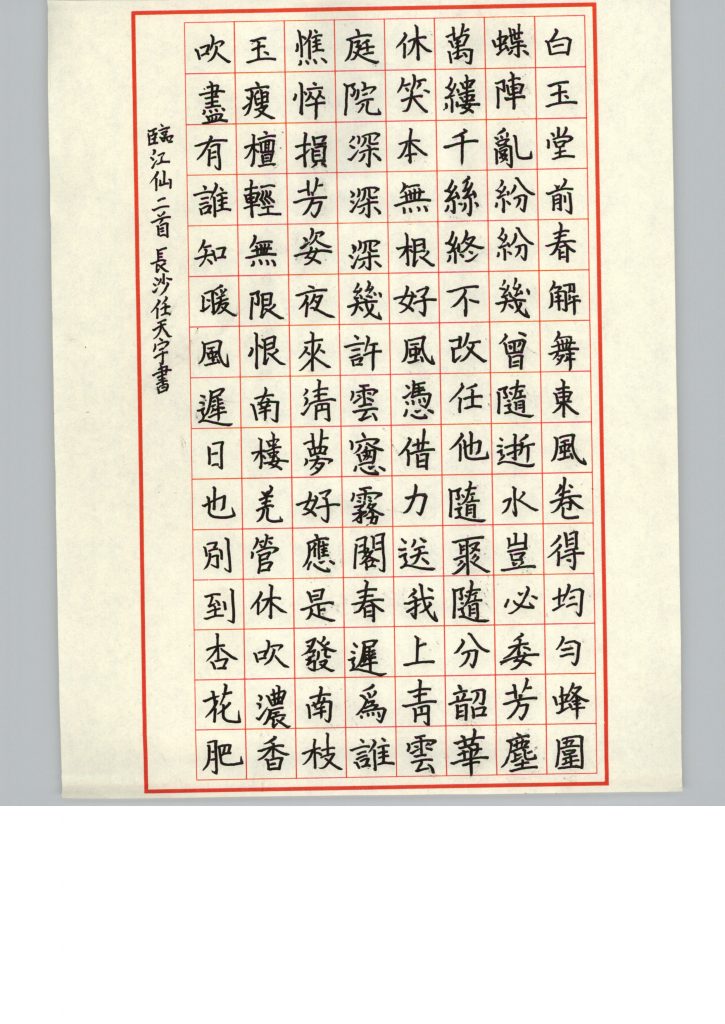 白玉堂前春解舞東風卷得均勻蜂圍
蝶陣亂紛紛幾曾隨逝水豈必委芳塵
萬縷千絲終不改任他隨聚隨分韶華
休笑本無根好風憑借力送我上青雲
庭院深深深幾許雲窗霧閣春遲為誰
憔悴損芳姿夜來清夢好應是發南枝
玉瘦檀輕無限恨南樓羌管休吹濃香
吹盡有誰知暖風遲日也別到杏花肥
臨江仙二首 長沙任天宇書